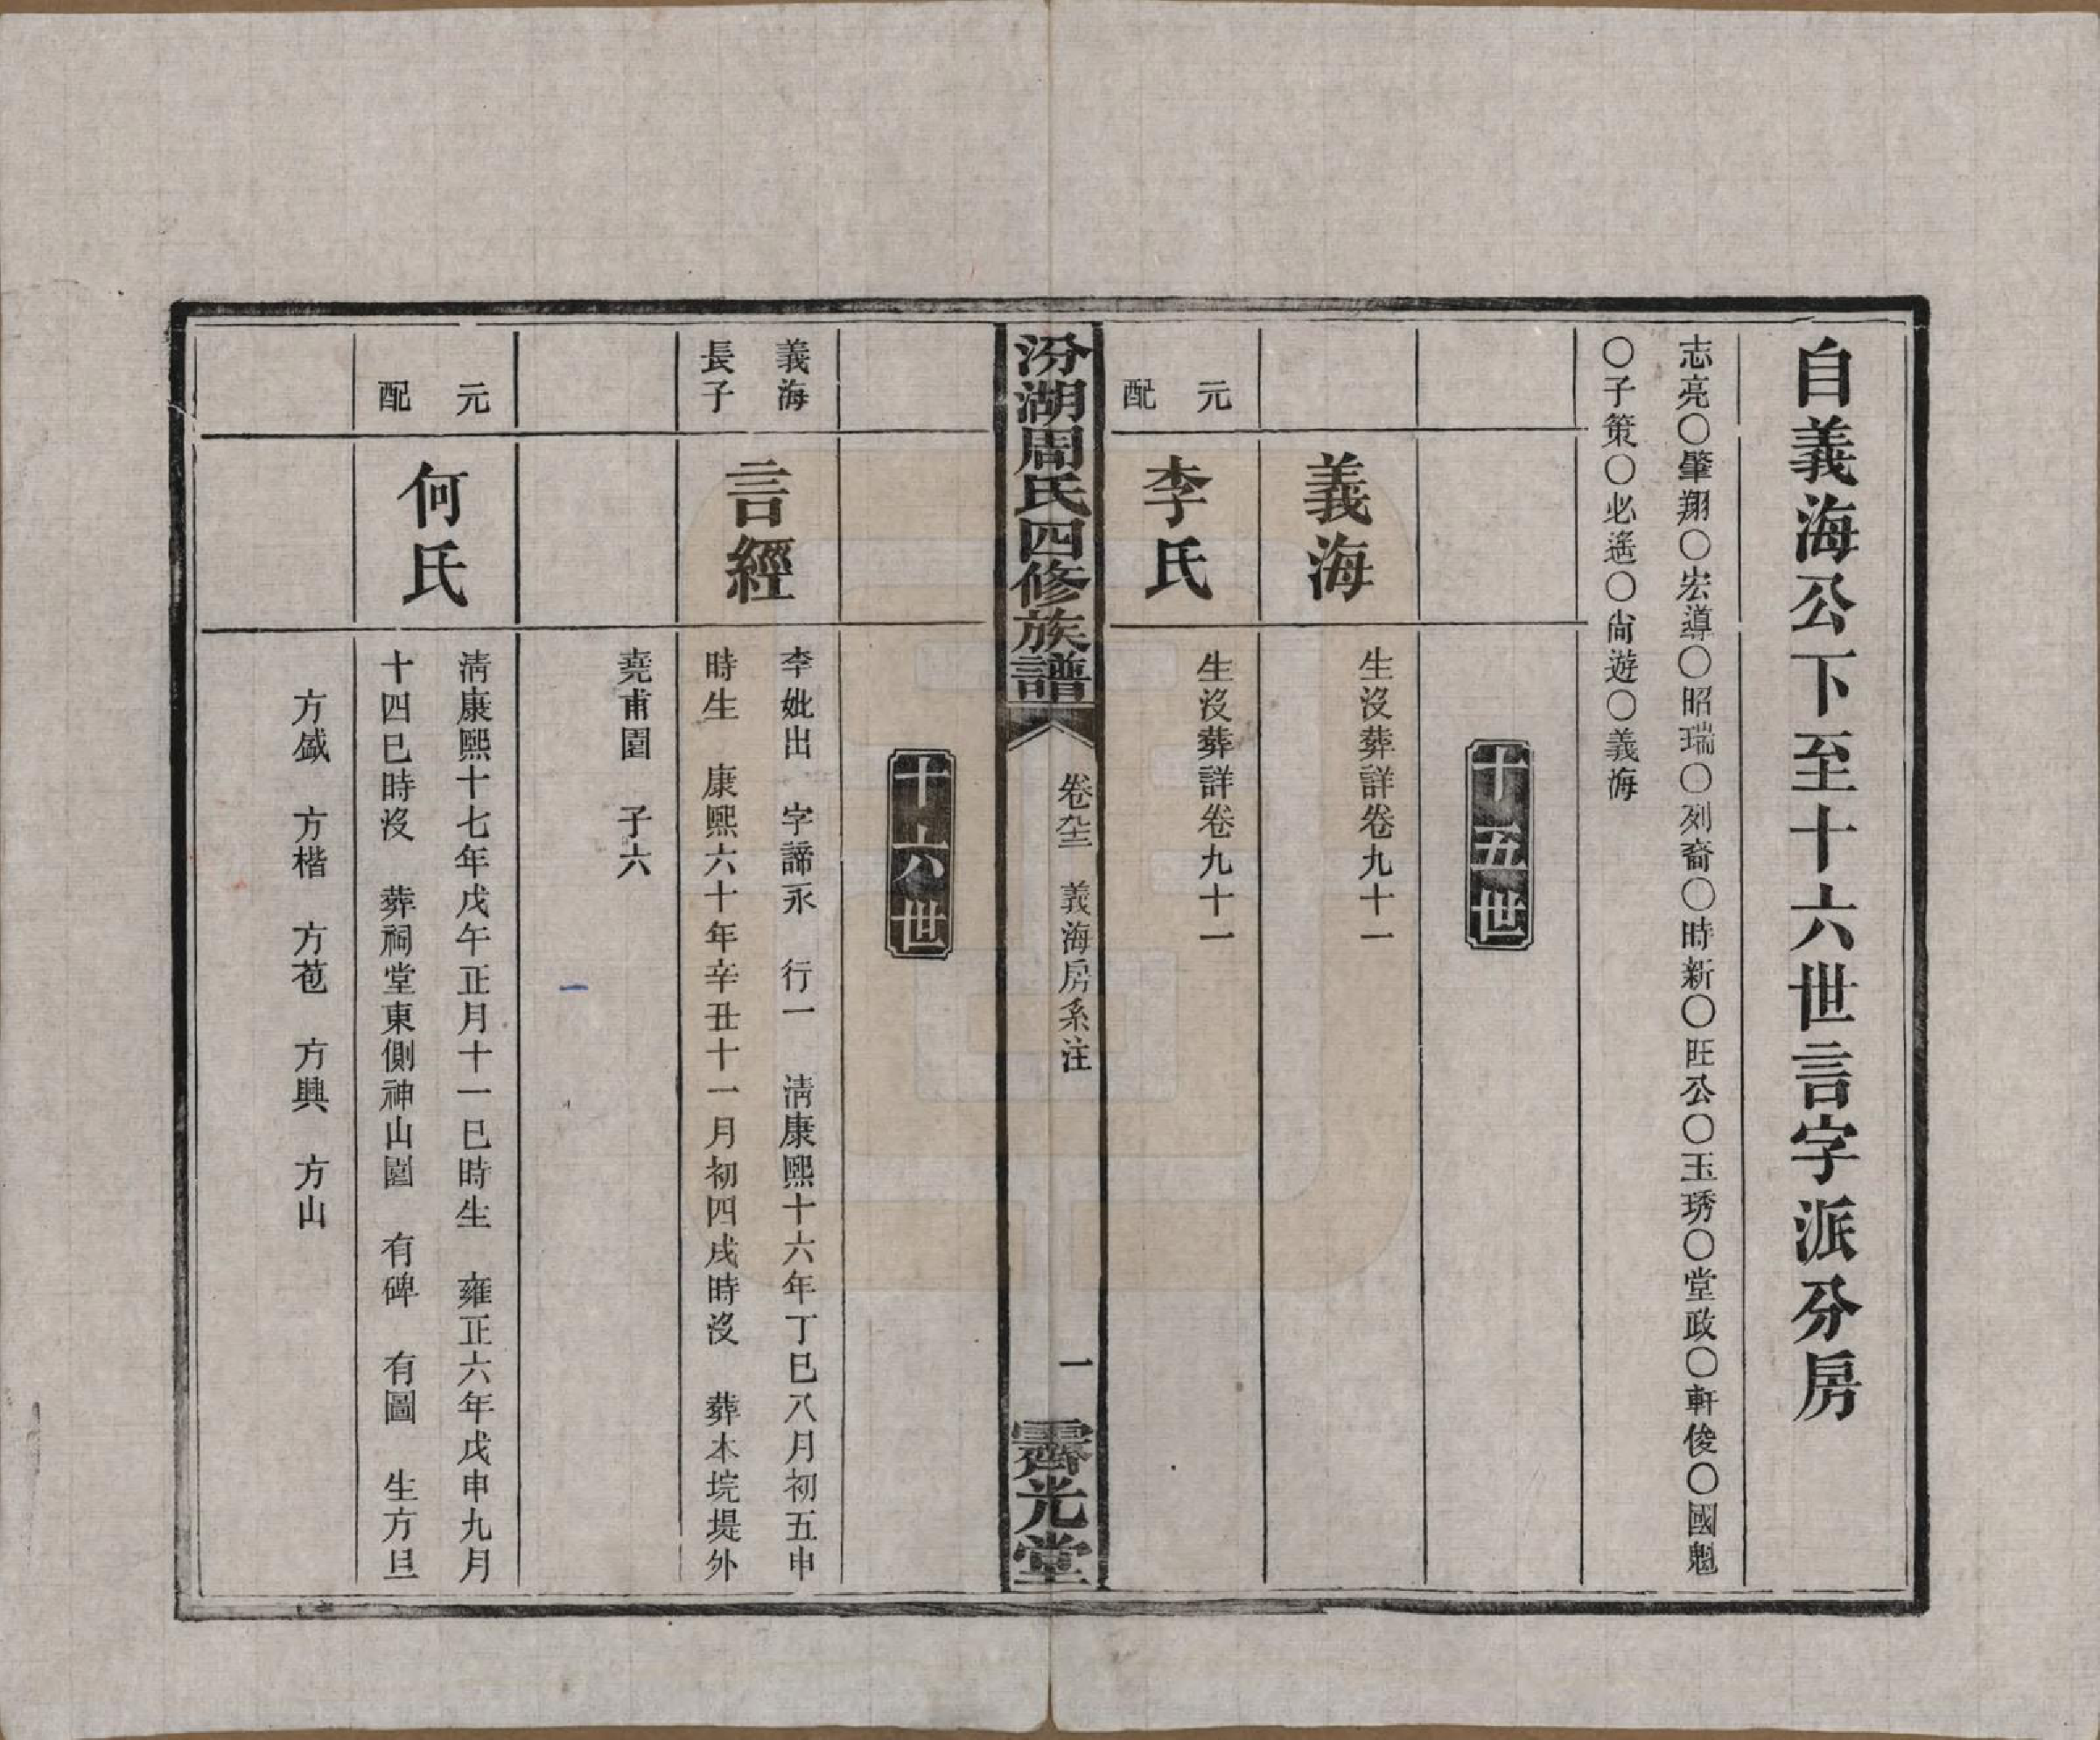 自義海公下至十六世言字派分房
志亮〇肇翔〇宏導〇昭瑞〇列裔〇時新〇旺公〇玉琇〇堂政〇軒俊〇國魁
〇子策〇必遙〇尙遊〇義海
十五世
義海
生沒葬詳卷九十一
元配
李氏
生沒葬詳卷九十一
汾湖周氏四修族譜
義海房系注
一
霽光堂
十六世
義海
長子
言經
李妣出 字諦永 行一 淸康熙十六年丁巳八月初五申
時生 康熙六十年辛丑十一月初四戌時沒 葬木垸堤外
堯甫園 子六
元配
何氏
淸康熙十七年戊午正月十一巳時生 雍正六年戊申九月
十四巳時沒 葬祠堂東側神山園 有碑 有圖 生方旦
方盛 方楷 方苞 方興 方山